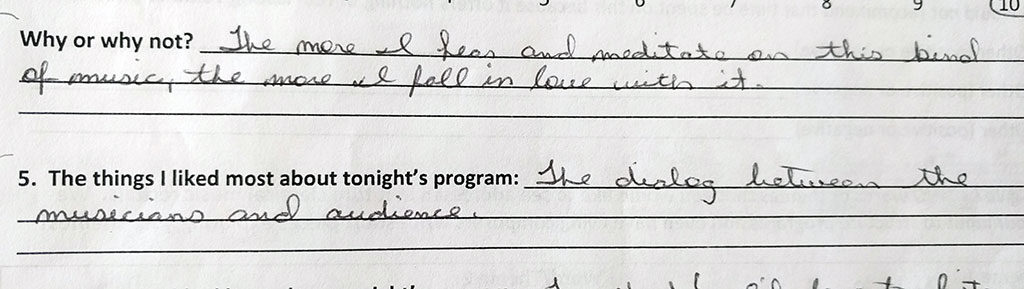 8 9 10
Why or why not? The more I hear and meditate on this kind
of music, the more I fall in love with it.
5. The things I liked most about tonight's program: The dialog between the
musicians and audience.